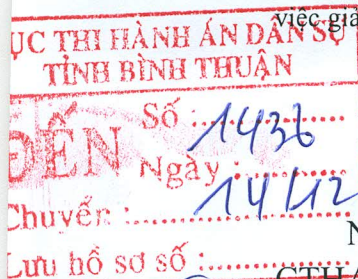 việc giả
ỤC THI HÀNH ÁN DÂN SỰ
TỈNH BÌNH THUẬN
ĐẾN
Số : 1436
Ngày : 14/12
Chuyển :
Lưu hồ sơ số :